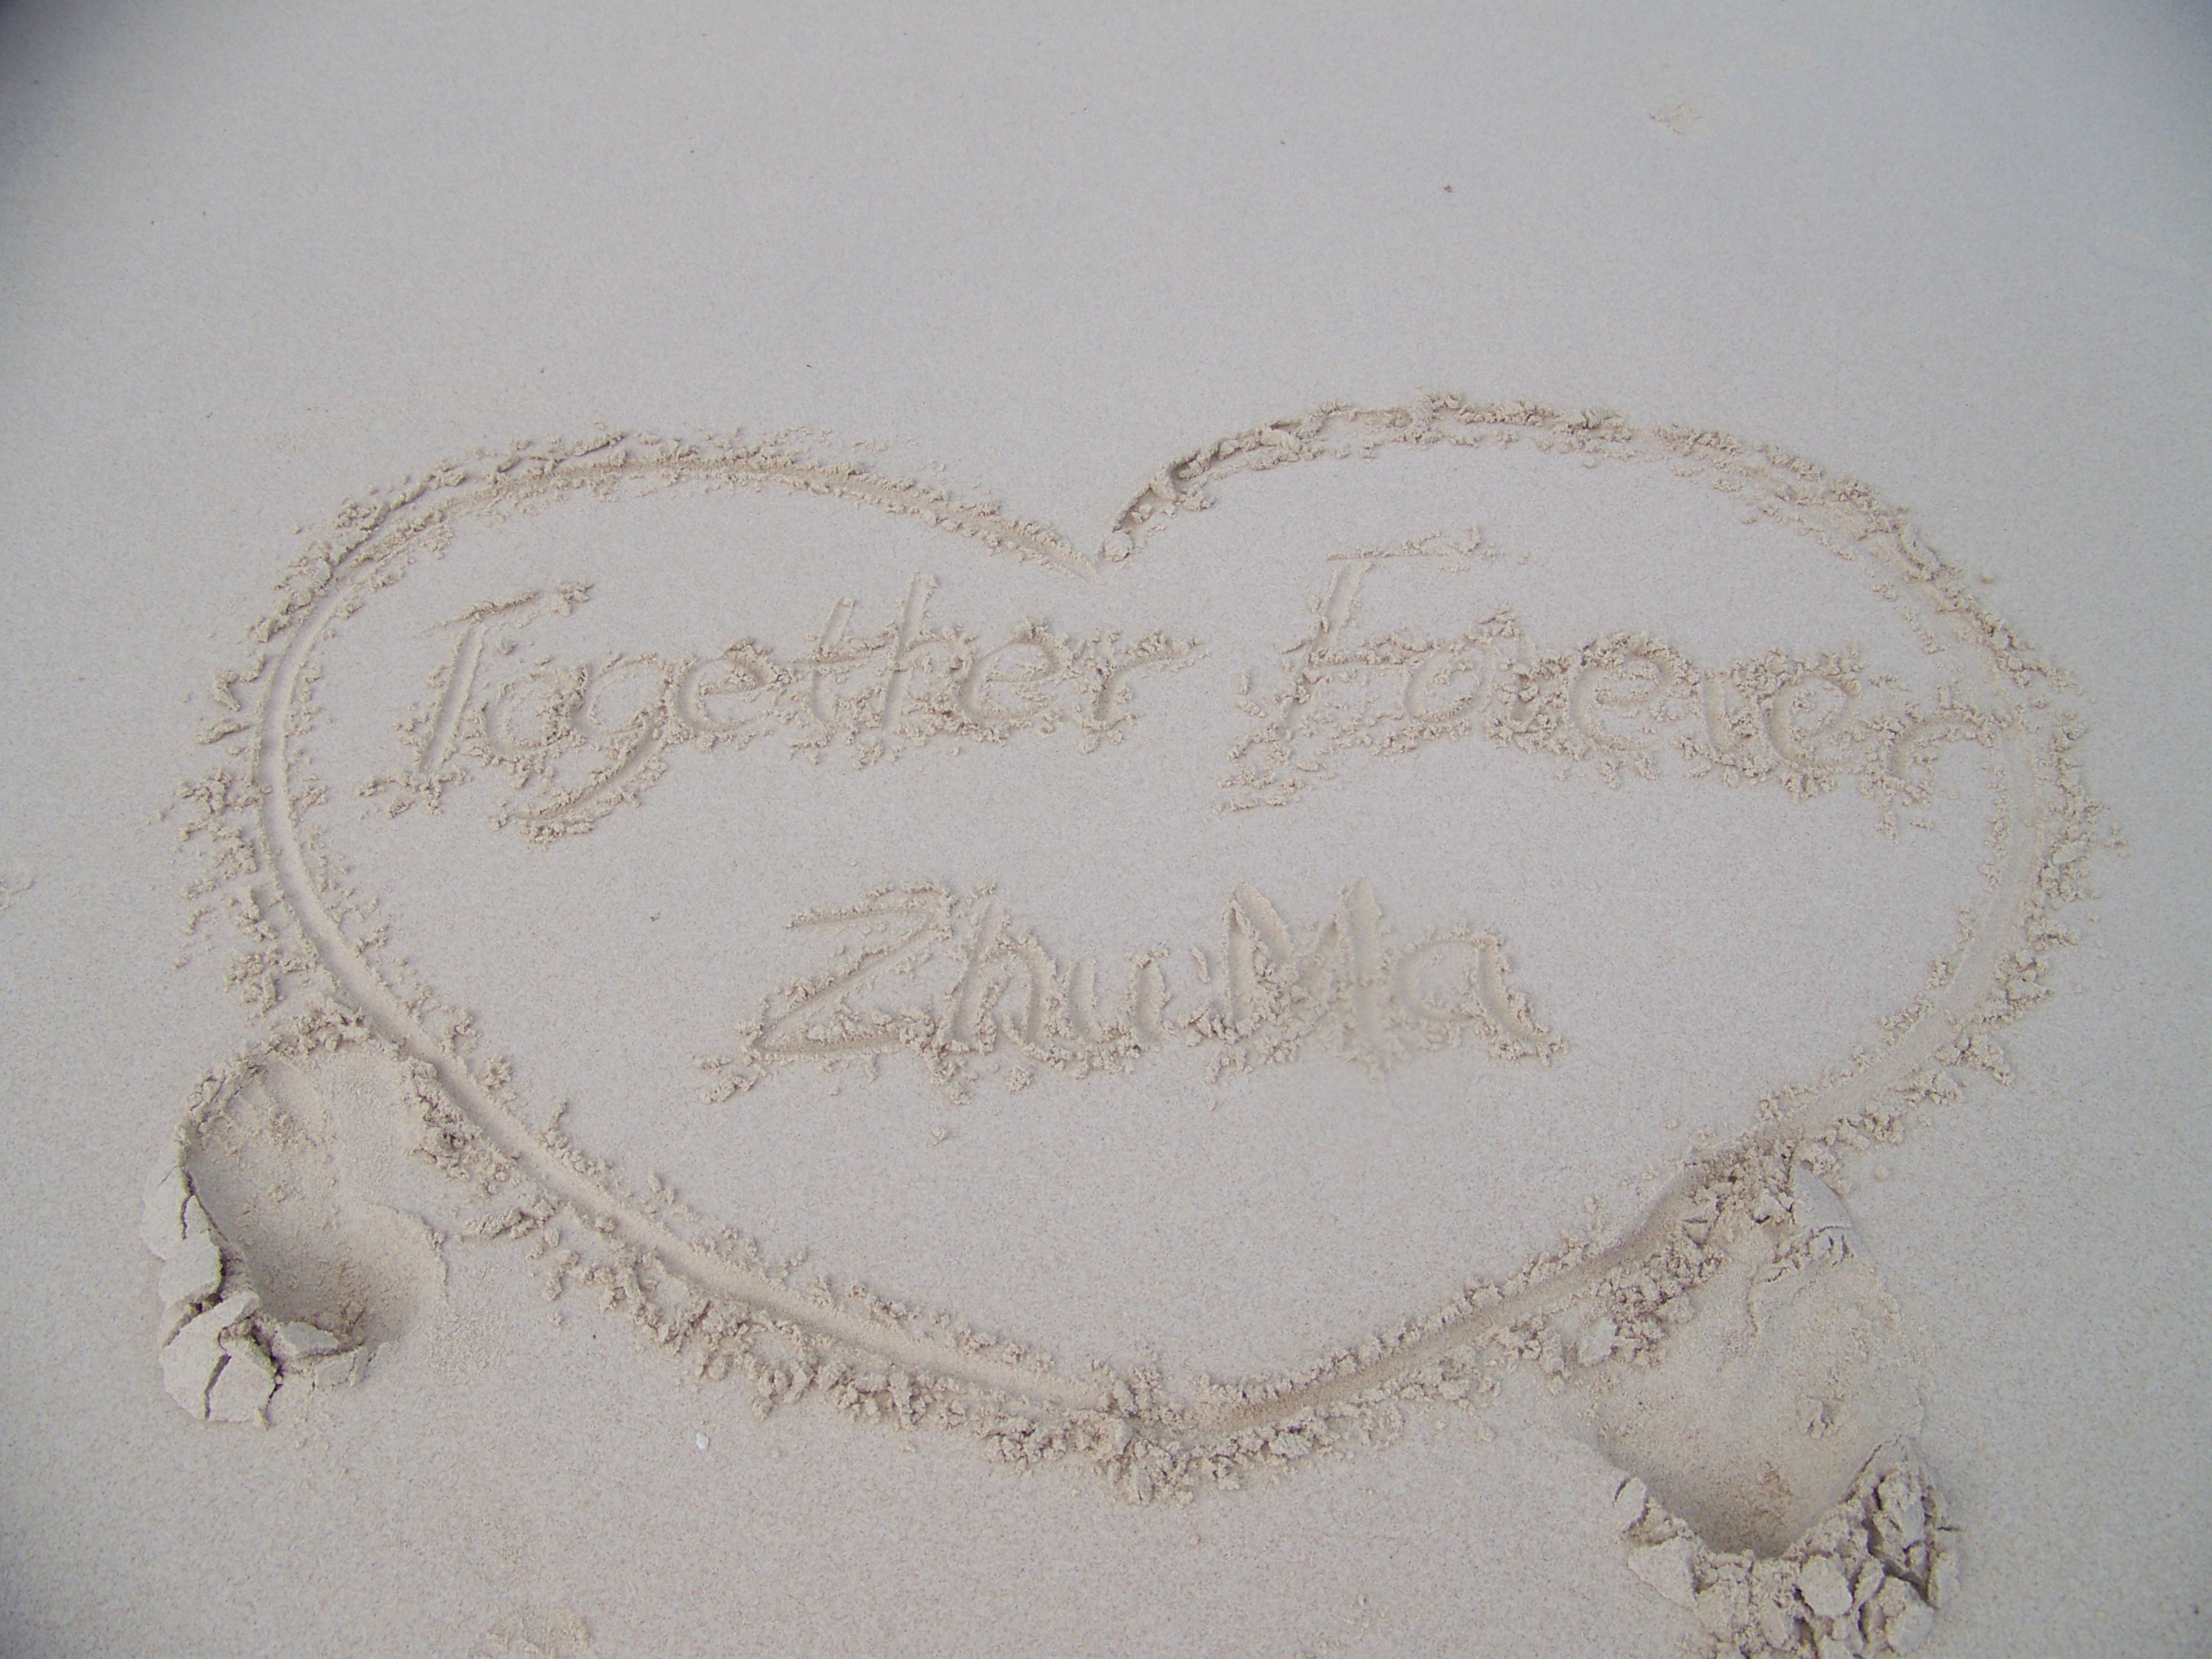 Together Forever
ZhuMa